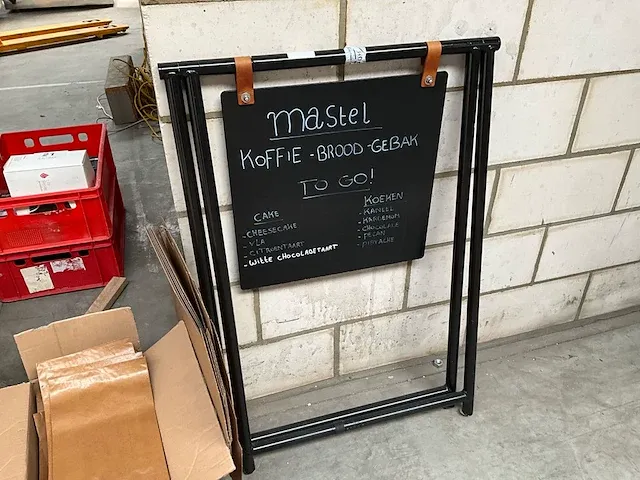 mastel
KOFFIE - BROOD - GEBAK
TO GO!
CAKE
- CHEESECAKE
- VLA
- CITROENTAART
- WITTE CHOCOLADETAART
KOEKEN
- KANEEL
- KARDEMOM
- CHOCOLADE
- PECAN
- PISTACHE